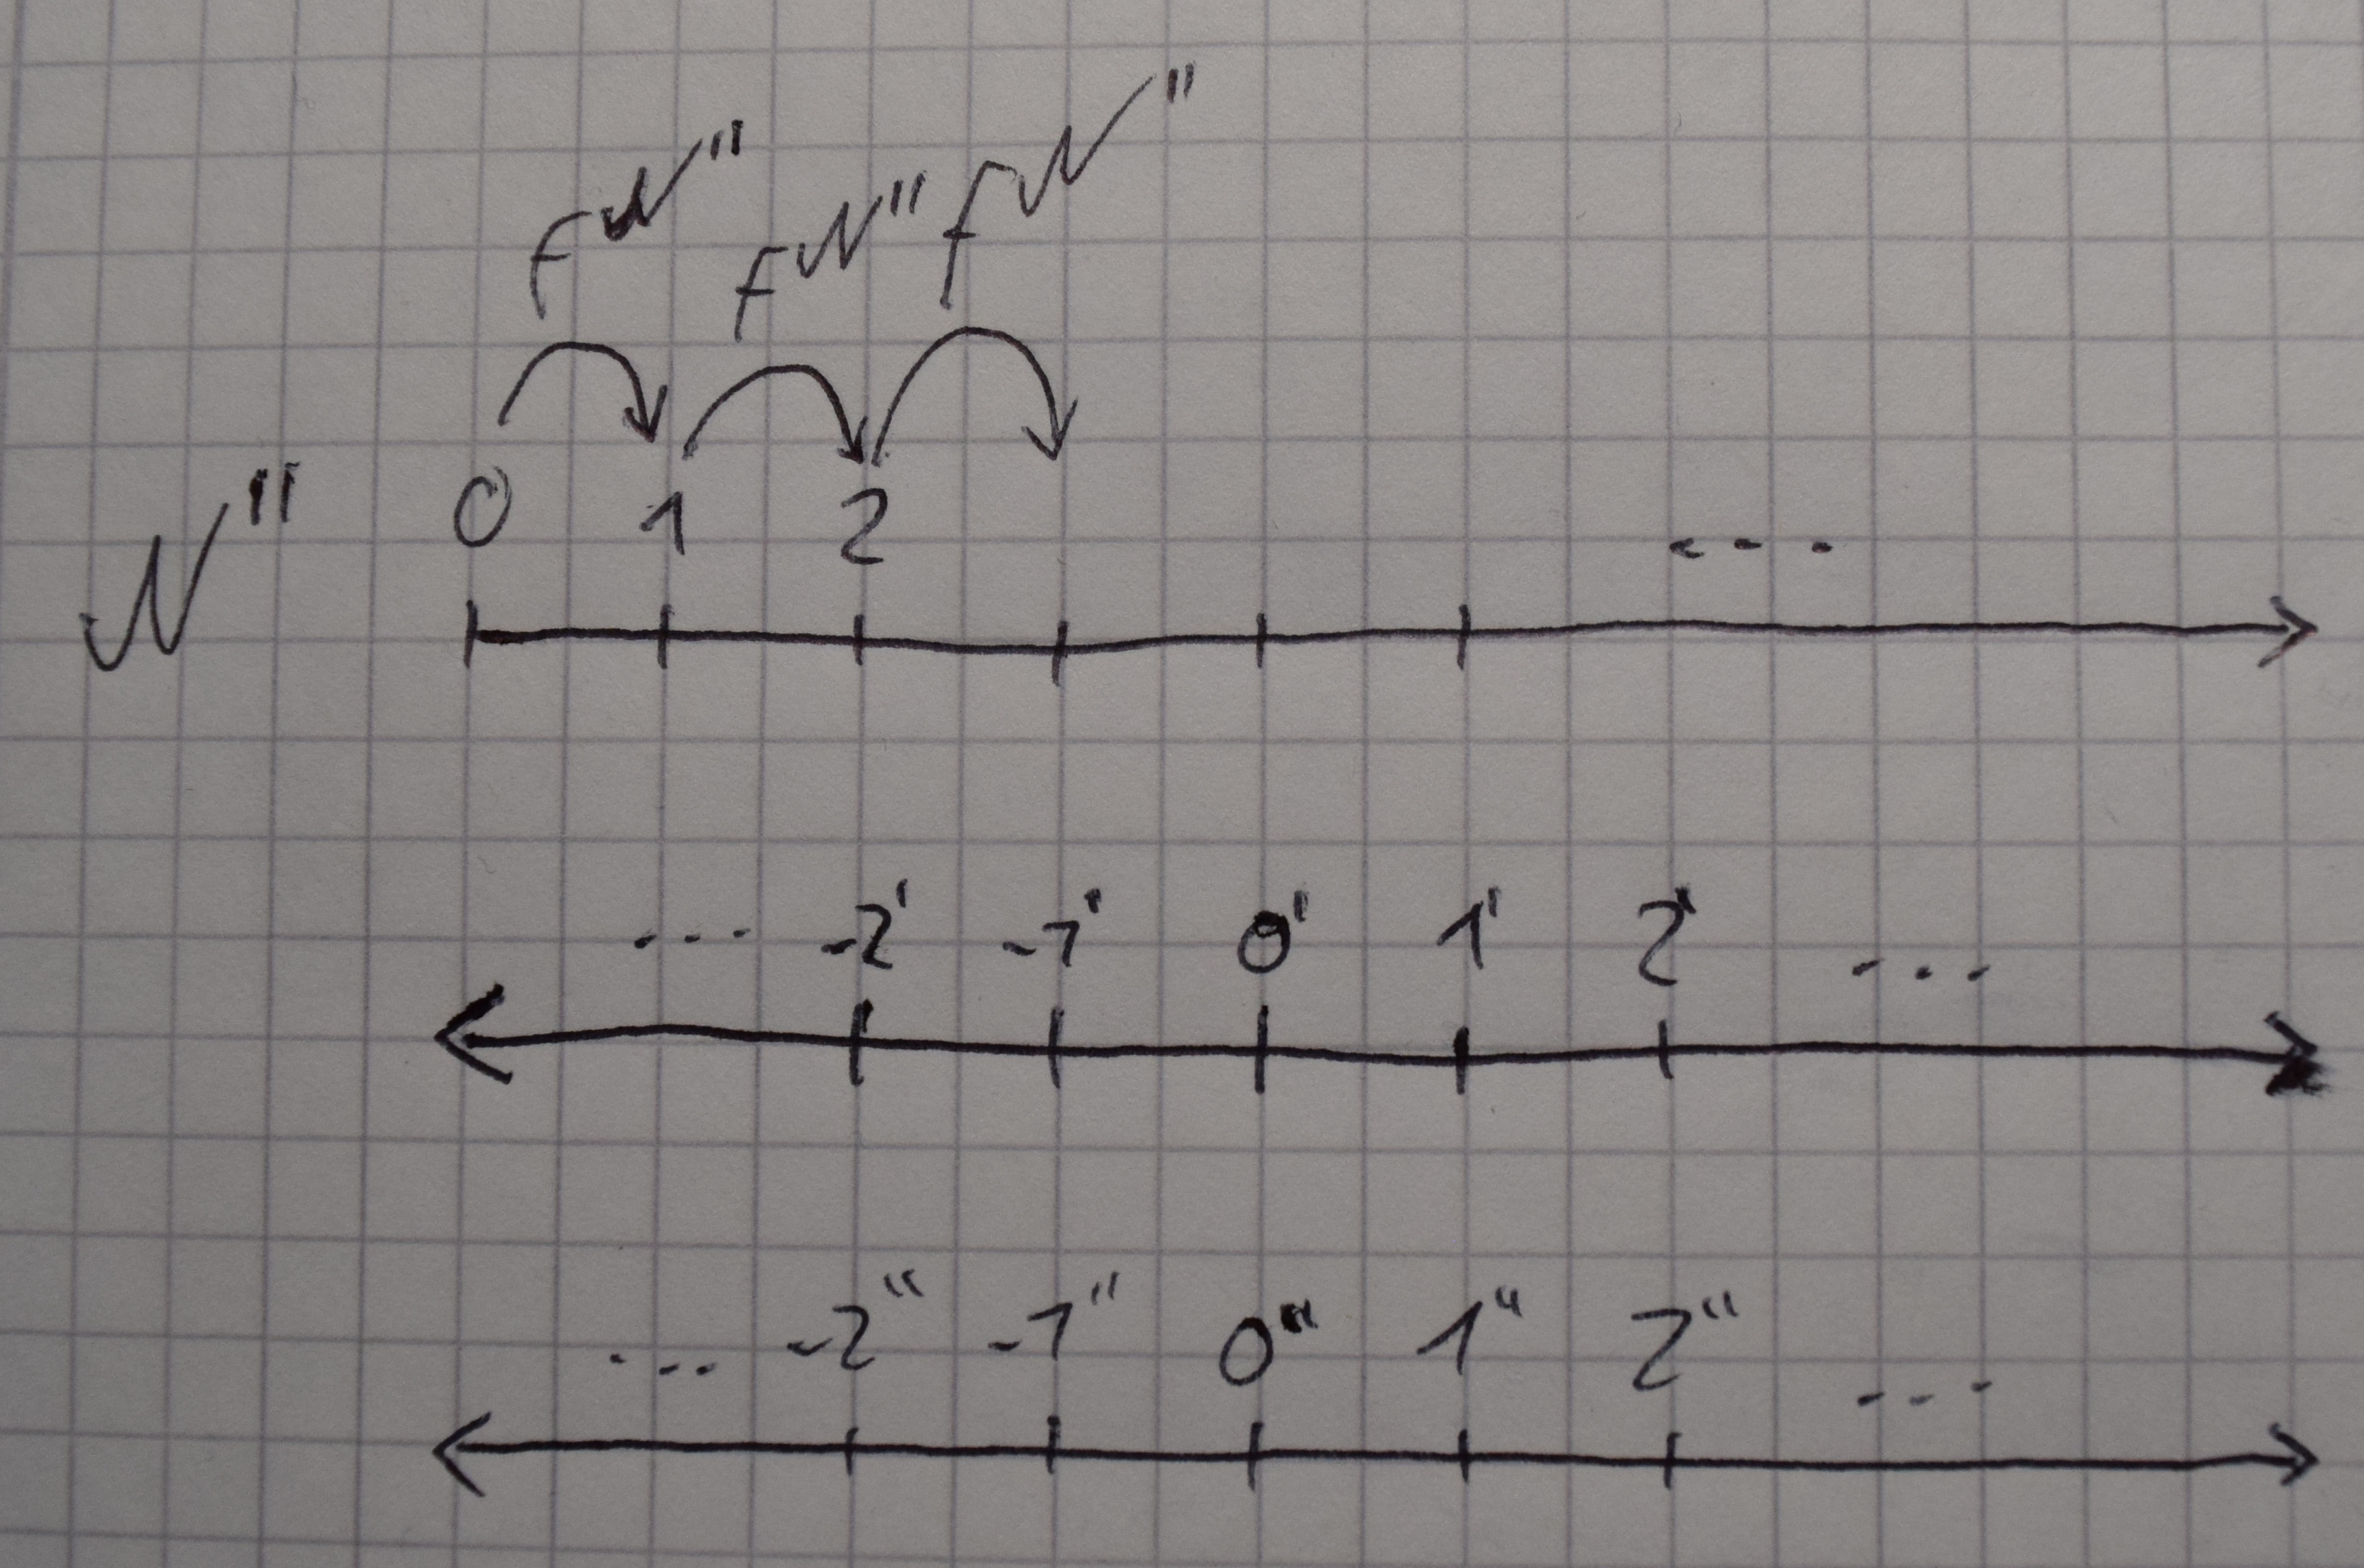 f𝒩'' f𝒩'' f𝒩''
𝒩'' 0 1 2 ...
... -2' -1' 0' 1' 2' ...
... -2'' -1'' 0'' 1'' 2'' ...